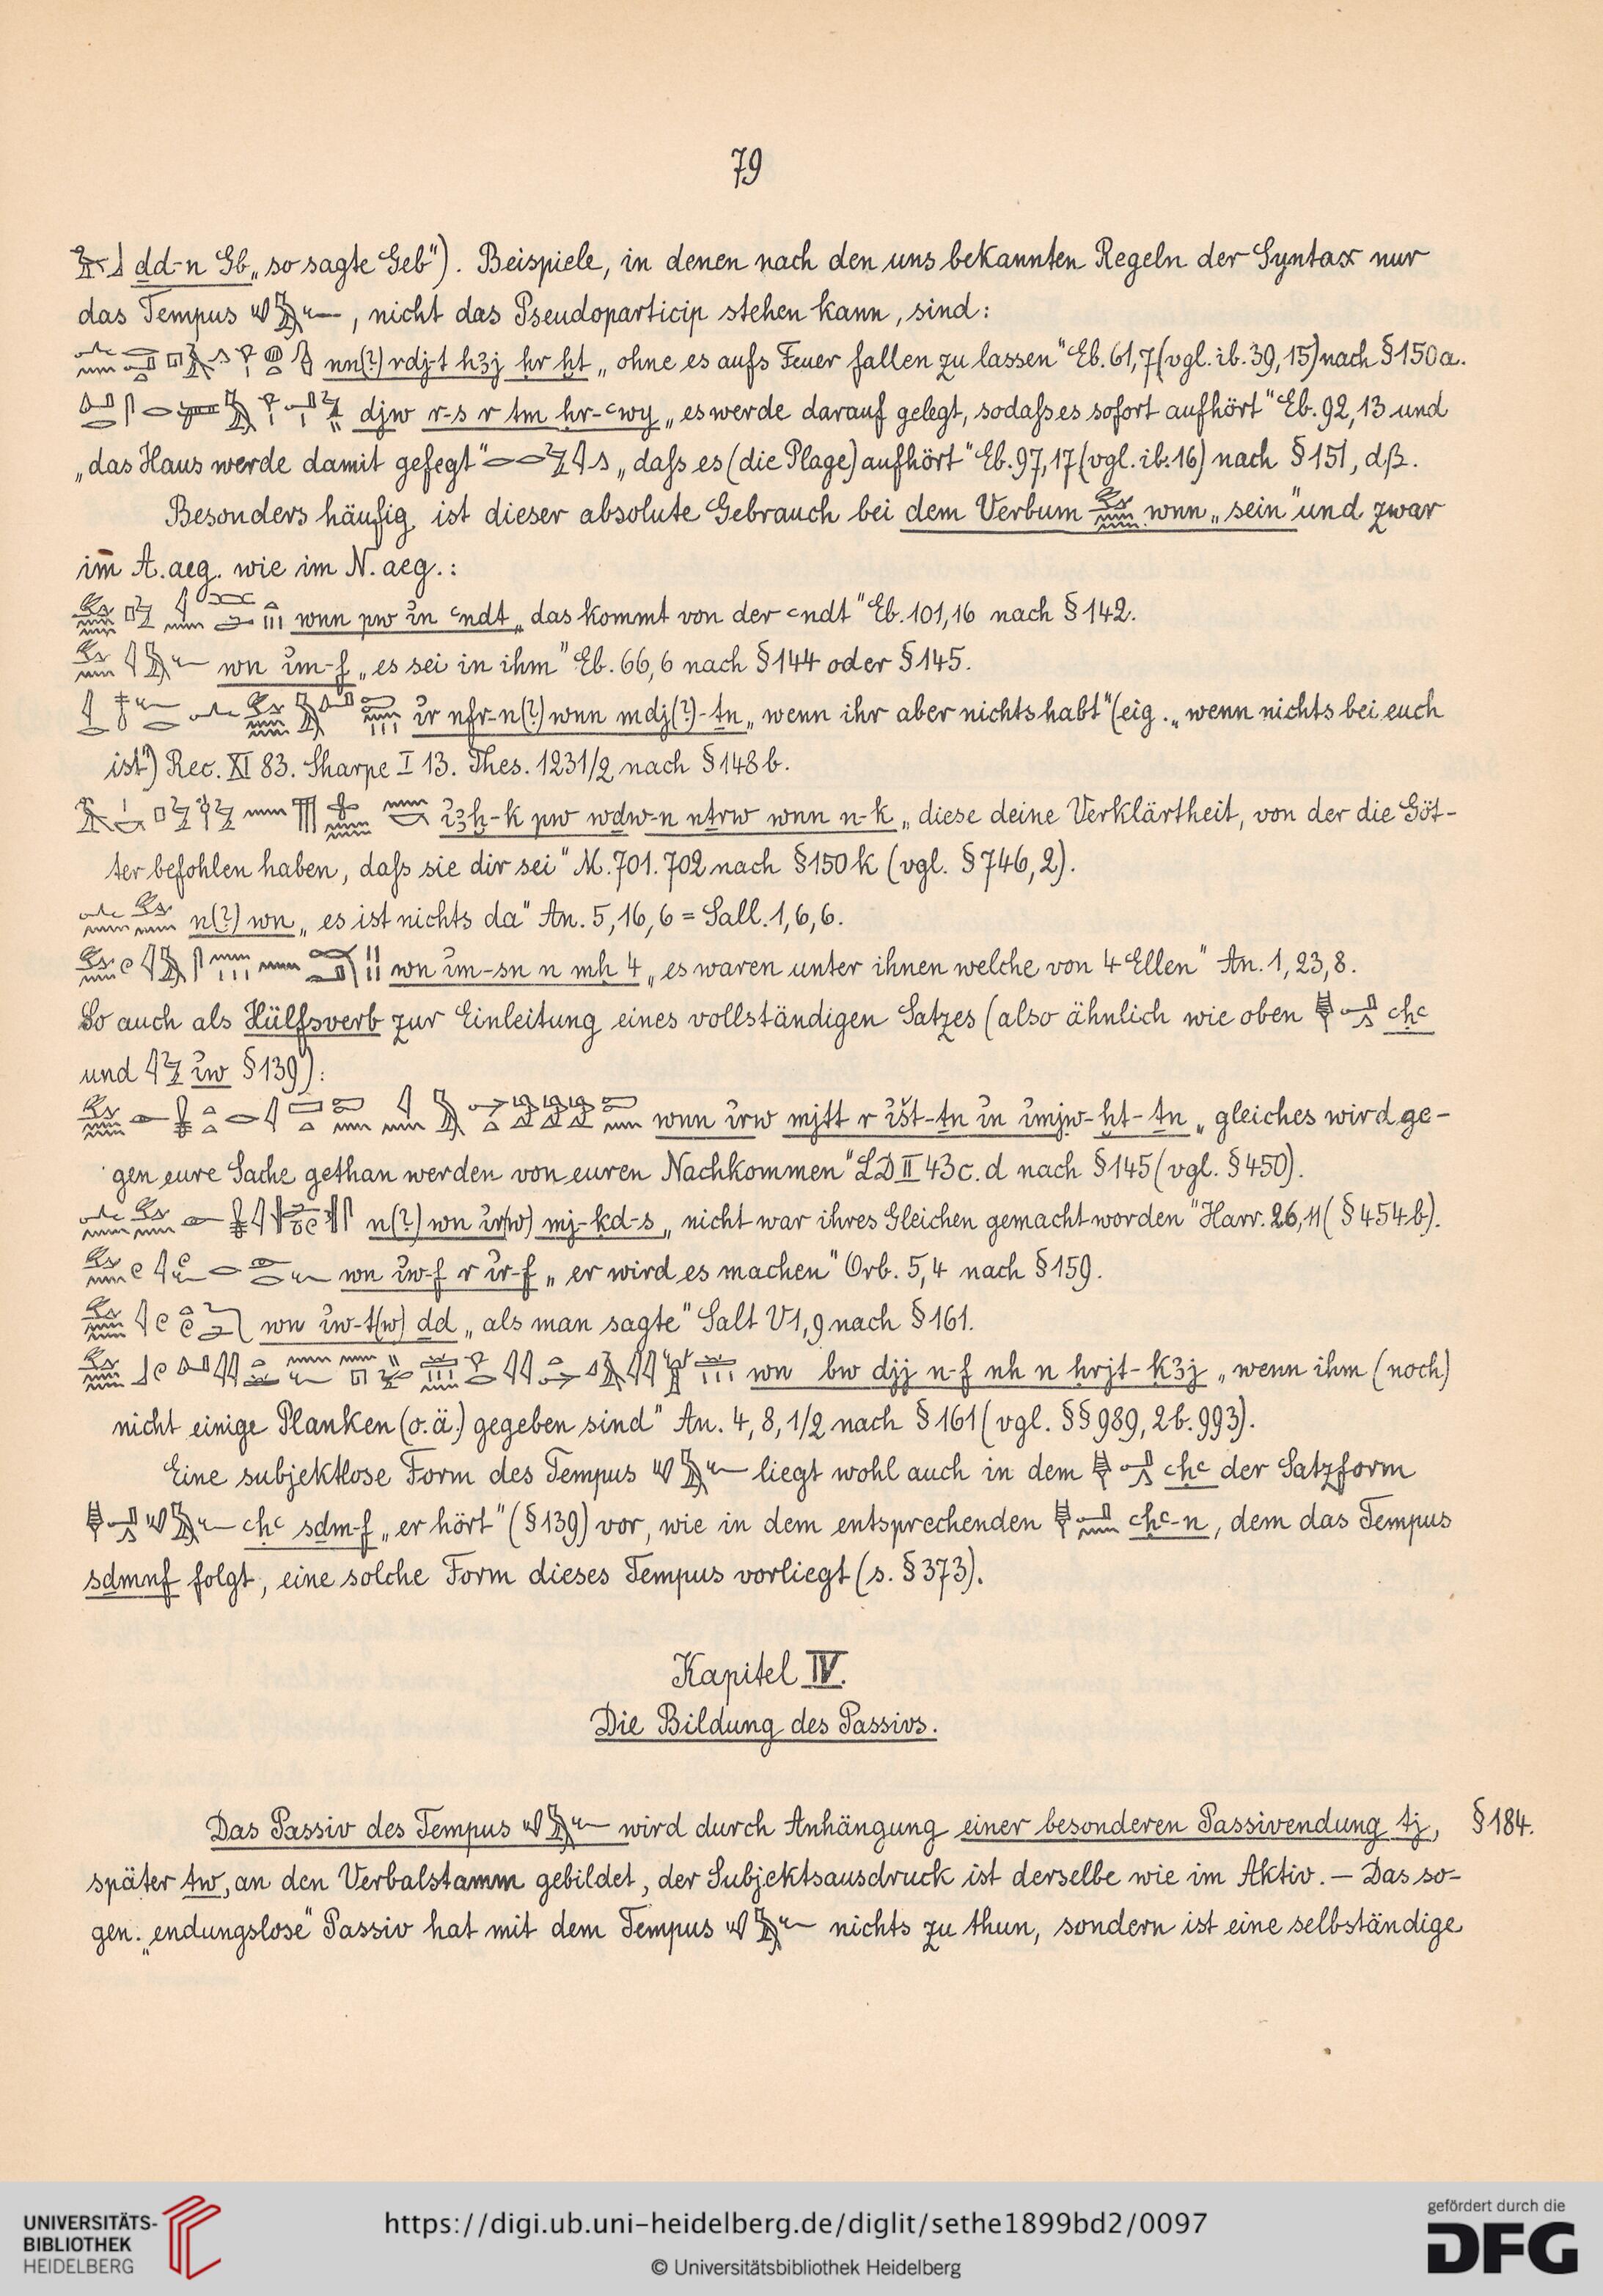 79
dd-n Gb „so sagte Geb“). Beispiele, in denen nach den uns bekannten Regeln der Syntax nur
das Tempus , nicht das Pseudoparticip stehen kann, sind:
nn(?) rdj-t h3j ḥr ḫt „ohne es aufs Feuer fallen zu lassen“ Eb. 61,7 (vgl. ib. 39,15) nach § 150a.
djw r-s r tm ḥr-ꜥwy „es werde darauf gelegt, sodaſs es sofort aufhört“ Eb. 92,13 und
„das Haus werde damit gefegt“ „daſs es (die Plage) aufhört“ Eb. 97,17 (vgl. ib. 16) nach § 151, dβ.
Besonders häufig ist dieser absolute Gebrauch bei dem Verbum wnn „sein“ und zwar
im A. aeg. wie im N. aeg.:
wnn pw ỉn ꜥndt „das kommt von der ꜥndt“ Eb. 101,16 nach § 142.
wn ỉm-f „es sei in ihm“ Eb. 66,6 nach § 144 oder § 145.
ỉr nfr-n(?) wnn mdj(?)-tn „wenn ihr aber nichts habt“ (eig. „wenn nichts bei euch
ist“) Rec. XI 83. Sharpe I 13. Thes. 1231/2 nach § 148b.
ỉ3ḫ-k pw wdw-n nṯrw wnn n-k „diese deine Verklärtheit, von der die Göt-
ter befohlen haben, daſs sie dir sei“ M. 701. 702 nach § 150k (vgl. § 746,2).
n(?) wn „es ist nichts da“ An. 5,16,6 = Sall. 1,6,6.
wn ỉm-sn n mḥ 4 „es waren unter ihnen welche von 4 Ellen“ An. 1,23,8.
So auch als Hülfsverb zur Einleitung eines vollständigen Satzes (also ähnlich wie oben ꜥḥꜥ
und ỉw § 139):
wnn ỉrw mjtt r ỉšt-tn ỉn ỉmjw-ḫt-tn „gleiches wird ge-
gen eure Sache gethan werden von euren Nachkommen“ LD II 43c.d nach § 145 (vgl. § 450).
n(?) wn ỉr(w) mj-ḳd-s „nicht war ihres Gleichen gemacht worden“ Harr. 26,11 (§ 454b).
wn ỉw-f r ỉr-f „er wird es machen“ Orb. 5,4 nach § 159.
wn ỉw-t(w) dd „als man sagte“ Salt V1,9 nach § 161.
wn bw djj n-f nh n hrjt-ḳ3j „wenn ihm (noch)
nicht einige Planken (o.ä.) gegeben sind“ An. 4,8,1/2 nach § 161 (vgl. §§ 989, 2b. 993).
Eine subjektlose Form des Tempus liegt wohl auch in dem ꜥḥꜥ der Satzform
ꜥḥꜥ sdm-f „er hört“ (§ 139) vor, wie in dem entsprechenden ꜥḥꜥ-n, dem das Tempus
sdmnf folgt, eine solche Form dieses Tempus vorliegt (s. § 373).
Kapitel IV.
Die Bildung des Passivs.
Das Passiv des Tempus wird durch Anhängung einer besonderen Passivendung tj, § 184.
später tw, an den Verbalstamm gebildet, der Subjektsausdruck ist derselbe wie im Aktiv. – Das so-
gen. „endungslose“ Passiv hat mit dem Tempus nichts zu thun, sondern ist eine selbständige
UNIVERSITÄTS-
BIBLIOTHEK
HEIDELBERG
https://digi.ub.uni-heidelberg.de/diglit/sethe1899bd2/0097
© Universitätsbibliothek Heidelberg
gefördert durch die
DFG